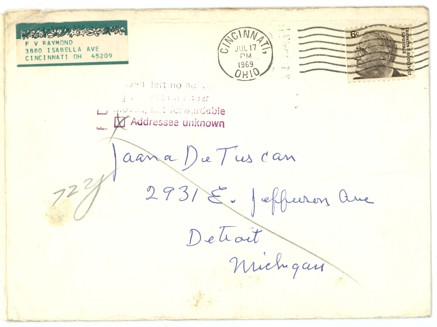 P V RAYMOND
3880 ISABELLA AVE
CINCINNATI OH 45209
CINCINNATI,
JUL 17
PM
1969
OHIO
6c
Addressee unknown
Jaana DeTuscan
2931 E. Jefferson Ave
Detroit
Michigan